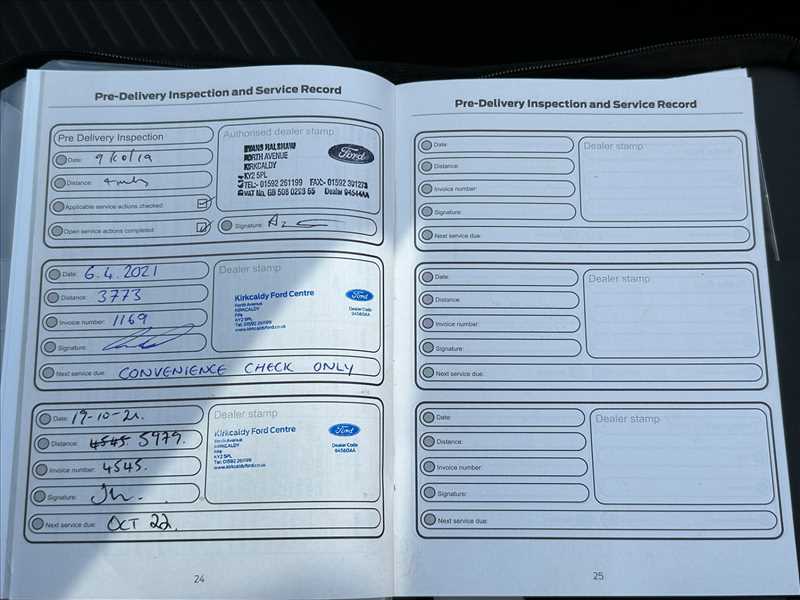 Pre-Delivery Inspection and Service Record
Pre Delivery Inspection
Date:
Distance:
Applicable service actions checked
Open service actions completed
Authorised dealer stamp
EVANS HALSHAW
NORTH AVENUE
KIRKCALDY
KY2 5PL
TEL:- 01592 261199 FAX:- 01592
VAT No. GB 508 Dealer
Ford
Signature:
Date: 6.4.2021
Distance: 3773
Invoice number: 1169
Signature:
Next service due: CONVENIENCE CHECK ONLY
Dealer stamp
Kirkcaldy Ford Centre
North Avenue
KIRKCALDY
Fife
KY2 5PL
Tel: 01592 261199
www.kirkcaldyford.co.uk
Ford
Dealer Code
94560AA
Date: 19-10-21.
Distance: 4545 5979.
Invoice number: 4545.
Signature:
Next service due: OCT 22.
Dealer stamp
Kirkcaldy Ford Centre
North Avenue
KIRKCALDY
Fife
KY2 5PL
Tel: 01592 261199
www.kirkcaldyford.co.uk
Ford
Dealer Code
94560AA
24
Pre-Delivery Inspection and Service Record
Date:
Distance:
Invoice number:
Signature:
Next service due:
Dealer stamp
Date:
Distance:
Invoice number:
Signature:
Next service due:
Dealer stamp
Date:
Distance:
Invoice number:
Signature:
Next service due:
Dealer stamp
25